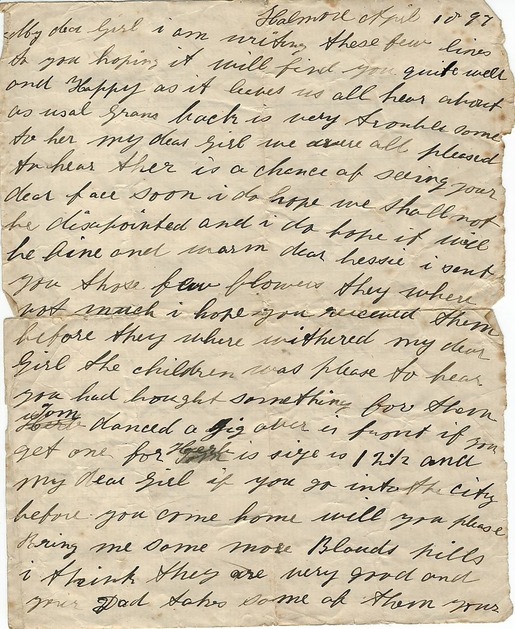 Halmord April 10 97
My dear Girl i am writing these few lines
to you hoping it will find you quite well
and Happy as it leeves us all hear about
as usal Grans back is very troublesome
to her my dear Girl we are all pleased
to hear ther is a chance of seeing your
dear face soon i do hope we shall not
be disapointed and i do hope it will
be fine and warm dear bessie i sent
you those few flowers they where
not much i hope you received them
before they where withered my dear
Girl the children was please to hear
you had bought something for them
Tom danced a jig over is frunt if you
get one for Herb is size is 12½ and
my dear Girl if you go into the city
before you come home will you please
Bring me some more Blauds pills
i think they are very good and
your Dad takes some of them your